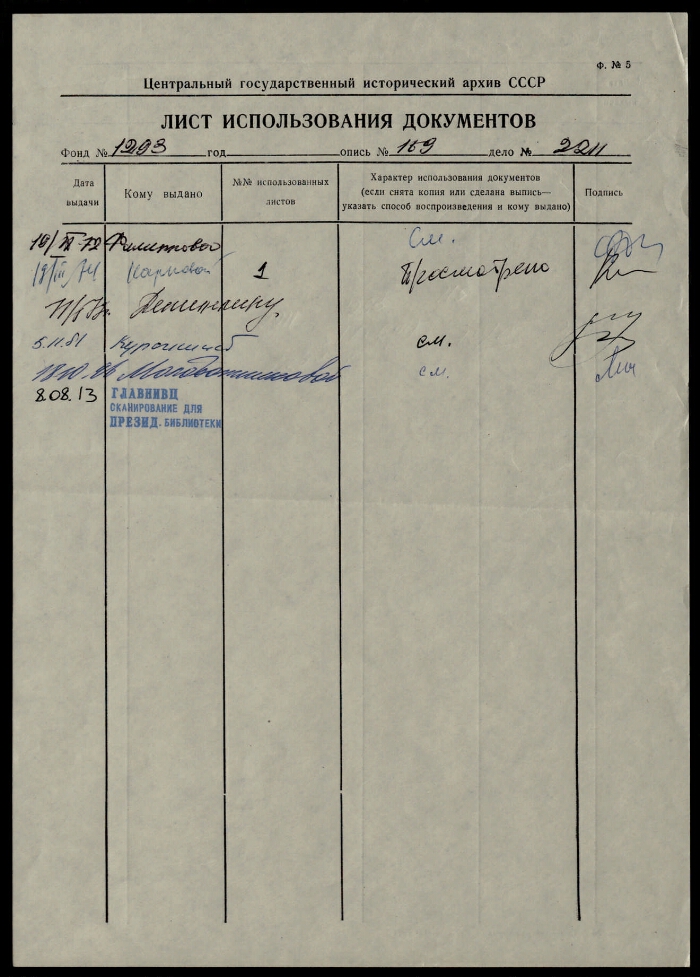 Ф. № 5
Центральный государственный исторический архив СССР
ЛИСТ ИСПОЛЬЗОВАНИЯ ДОКУМЕНТОВ
Фонд № 1293 год опись № 169 дело № 2211
Дата выдачи
Кому выдано
№№ использованных листов
Характер использования документов (если снята копия или сделана выпись— указать способ воспроизведения и кому выдано)
Подпись
Филипповой См.
Карповой 1 Просмотрено
5.11.81 см.
18.10.86 см.
8.08.13 ГЛАВНИВЦ
СКАНИРОВАНИЕ ДЛЯ
ПРЕЗИД. БИБЛИОТЕКИ